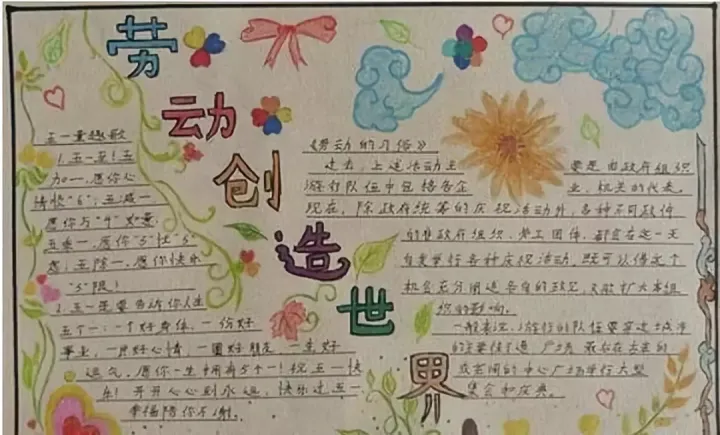 劳动创造世界
五一童趣歌
1.五一五!五
加一,愿你心
情快“6”;五减一
愿你与“4”如意
五乘一,愿你“5”忧“5”
虑;五除一,愿你快乐
“5”限!
2.五一是要告诉你人生
五个一:一个好身体,一份好
事业,一片好心情,一圈好朋友,一生好
运气,愿你一生拥有5个一!祝五一快
乐!开开心心到永远,快乐过五一
幸福陪你不
《劳动的习俗》
过去,上述活动主要是由政府组织
游行队伍中包括各企业,机关的代表。
现在,除政府统筹的庆祝活动外,各种不同政件
的非政府组织、劳工团体,都会在这一天
自发举行各种庆祝活动,既可以借这个
机会充分阐述各自的政见,又能扩大本组
织的影响。
一般来说,游行的队伍要穿过城市
的主要
的中心广场举行大型
集会和庆典。